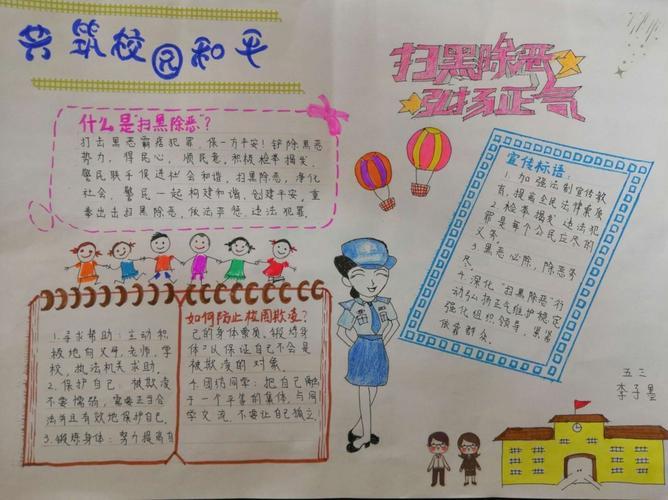 共筑校园和平
扫黑除恶
弘扬正气
什么是"扫黑除恶"?
打击黑恶霸痞犯罪,保一方平安!铲除黑恶
势力,得民心,顺民意,积极检举揭发,
警民联手促进社会和谐,扫黑除恶,净化
社会,警民一起构建和谐、创建平安,重
拳出击扫黑除恶,依法严惩违法犯罪。
宣传标语:
1.加强法制宣传教
育,提高全民法律素质
2.检举揭发违法犯
罪是每个公民应尽的
义务
3.黑恶必除,除恶务
尽
4.深化"扫黑除恶"行
动弘扬正气维护稳定
强化组织领导,紧紧
依靠群众。
如何防止校园欺凌?
1.寻求帮助:主动积
极地向父母、老师,学
校,执法机关求助。
2.保护自己:被欺凌
不要懦弱,需要正当合
法并且有效地保护自己。
3.锻炼身体:努力提高自
己的身体素质、锻炼身
体"以保证自己不会是
被欺凌的对象。
4.团结同学:把自己融
于一个平等的集体,与同
学交流,不要让自己孤立。
五三
李子墨